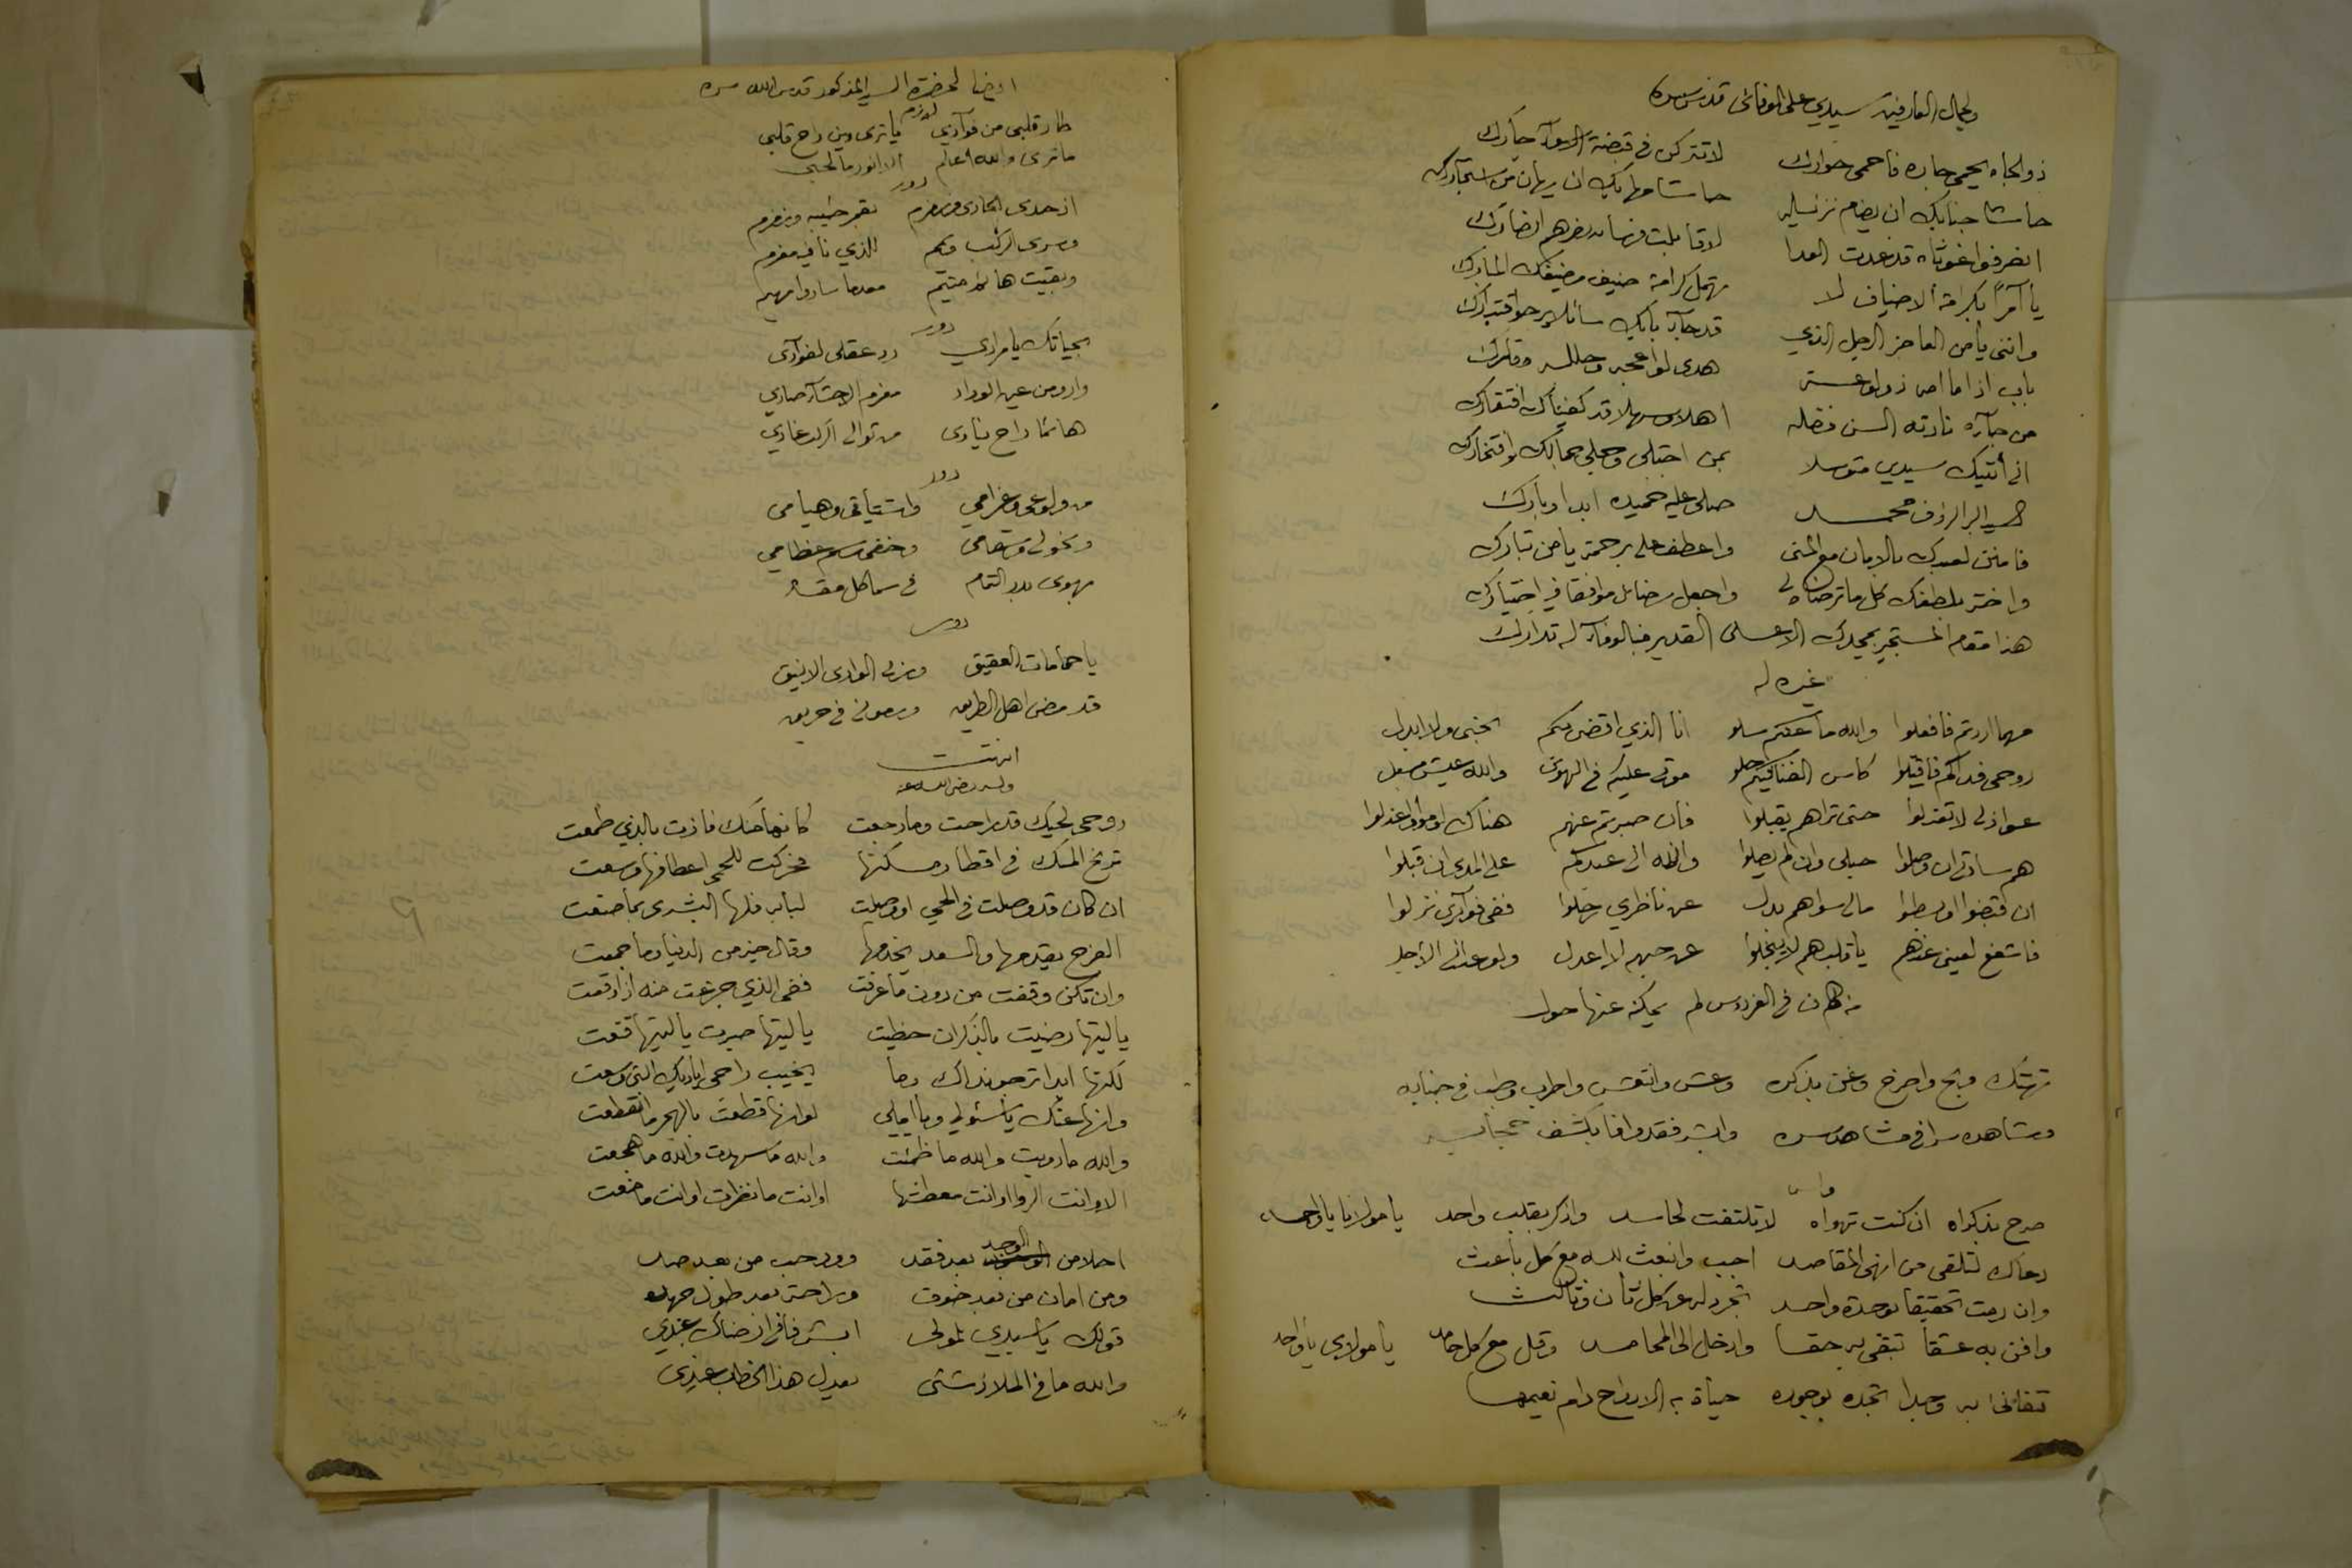 ولجمال العارفين سيدي علي الوفائي قدس سره
ذو الجاه يحمي جاره فاحمي جوارك لا تتركن في قبضة جارك
حاشا جنابك ان يضام نزيله حاشا مهابك ان يهان من استجارك
قد غدت العدا لاقابلت
يا آمراً بكرامة الاضياف لا تهمل كرامة ضيف مضيفك المبارك
وانني يا من العاجز الرجل الذي قد جاء بابك سائلا يرجو اقتدارك
باب اذا ما ام ذو لو
من جاره نادته السن فضله اهلا وسهلا قد كفيناك افتقارك
اني أتيتك سيدي متوسلا بمن اجتلى وجلى جمالك وافتخارك
السيد البر الرؤف محمد صلى عليه ابدا وبارك
فامنن لعبدك بالامان مع المنى واعطف علي برحمة يا من تبارك
واختر بلطفك كل ما ترضاه لي واجعل رضائي موافقا في اختيارك
هذا مقام المستجير بمجدك الاعلى القدير فبالوفاء له تدارك
غيره له
مهما اردتم فافعلوا والله ما عنكم سلو انا الذي اقضي بكم نحبي ولا ابدل
روحي فداكم فاقبلوا كاس الفنا فيكم حلو موتي عليكم في الهوى والله عيش مقبل
عواذلي لا تعذلوا حتى تراهم يقبلوا فان صبرتم عنهم هناك لوموا واعذلوا
هم سادتي ان وصلوا حبلي وان لم يصلوا والله اني عبدكم على المدى ان قبلوا
ان قبضوا او بسطوا مالي سواهم بدل عن ناظري رحلوا ففي فوآدي نزلوا
فاشفع لعيني عندهم يا قلب هم لا يبخلوا عن حبهم لا اعدل ولو عداني الاجل
من كان في الفردوس لم يمكنه عنها حول
تهتك وبح واصرخ وغن بذكره وعش وانتعش واطرب وطب في جنابه
ومشاهده سرا في مشاهد سره وابشر فقد وافا بكشف حجابه
وله
صرح بذكراه ان كنت تهواه لا تلتفت لحاسد واذكر بقلب واحد يا مولانا يا واحد
دعاك لتلقى من انهى المقاصد اجب وانبعث لله مع كل باعث
وان رمت تحقيقا بوحدة واحد تجرد له عن كل ثان وثالث
وافن به عشقا تبقى به حقا وادخل الى المحامد وقل مع كل حامد يا مولاي يا واحد
تفانى به وجدا تجده بوجوده حياة به الارواح دام نعيمها
ايضا لحضرة السيد المذكور قدس الله سره
لازم
طار قلبي من فوآدي يا ترى وين راح قلبي
ما ترى والله اعلم الا
دور
اذ حدى الحادي وزمزم
وسرى الركب ويمم الذي نافيه مغرم
وبقيت هائم متيم معهما ساروا مهيم
دور
بحياتك يا مرادي رد عقلي لفوآدي
واروِ من عين الوداد مغرم الاحشاء صادي
هائما راح ينادي من توالى الركب غادي
دور
من ولوعي وغرامي واشتياقي وهيامي
ونحولي وسقامي وخفى رسم عظامي
بهوى بدر التمام في سما كل مقام
دور
يا حمامات العقيق ونزلي الوادي الانيق
قد مضى اهل الطريق ودعوني في حريق
انتهت
وله رضي الله عنه
روحي لحيك قد راحت وما رجعت كانها منك فازت بالذي طمعت
ترنح المسك في اقطار مسكنها فحركت للحمى اعطافها وسعت
ان كان قد وصلت في الحي او وصلت لبابه فلها البشرى بما صنعت
الفرح يقدمها والسعد يخدمها وقال خير من الدنيا وما جمعت
وان تكن وقفت من دون ما عرفت فمن الذي جرعت منه اذا وقعت
يا ليتها رضيت بالذكران حظيت يا ليتها صبرت يا ليتها قنعت
لكنها ابدا ترجو نداك وما يخيب راجي اياديك التي وسعت
وانها عنك يا سئولي ويا املي لو انها قطعت بالهجر ما انقطعت
والله ما رويت والله ما ظمئت والله ما سهدت والله ما هجعت
الا وانت الروا او انت معطشها او انت ما نظرت او انت ما منعت
احلا من الوجد بعد فقد وورد حب من بعد صد
ومن امان من بعد خوف وراحة بعد طول جهد
قولك يا سيدي لمولى ابشر فاني ارضاك عندي
والله ما في الملا شئ يعدل هذا الخطاب عندي